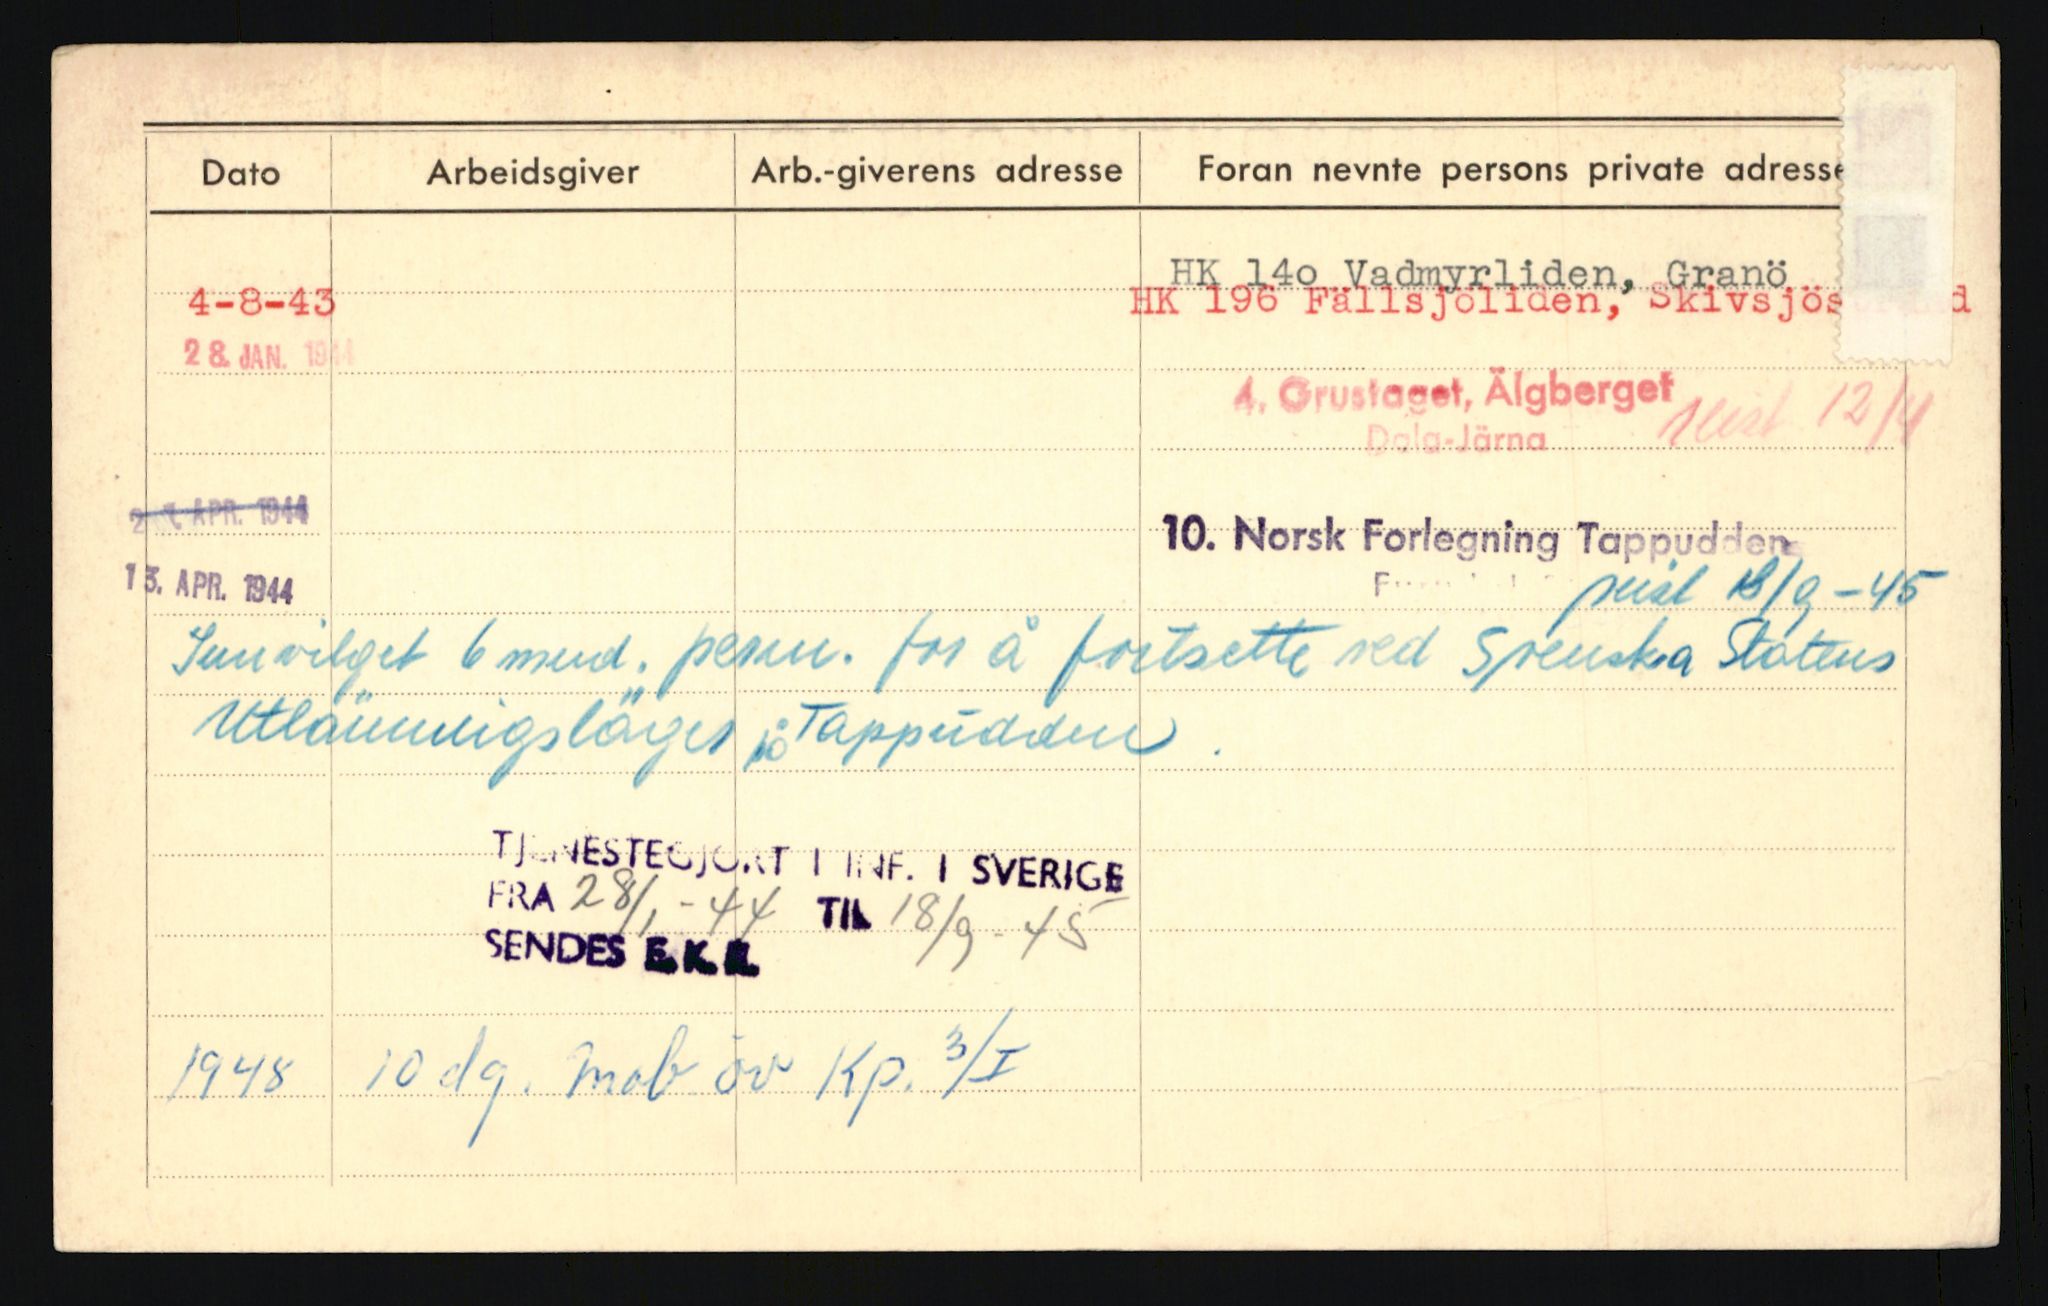 Dato Arbeidsgiver Arb.-giverens adresse Foran nevnte persons private adresse
HK 14o Vadmyrliden, Granö
4-8-43 HK 196 Fällsjöliden,
28. JAN. 1944
4. Grustaget, Älgberget
Dala-Järna reist 12/4
APR. 1944
10. Norsk Forlegning Tappudden
13. APR. 1944 reist 18/9-45
Innvilget 6 mnd. perm. for å fortsette ved Svenska Statens
Utlänningsläger på Tappudden.
TJENESTEGJORT I INF. I SVERIGE
FRA 28/1-44 TIL 18/9-45
SENDES
1948 10 dg. Mob öv Kp. 3/I